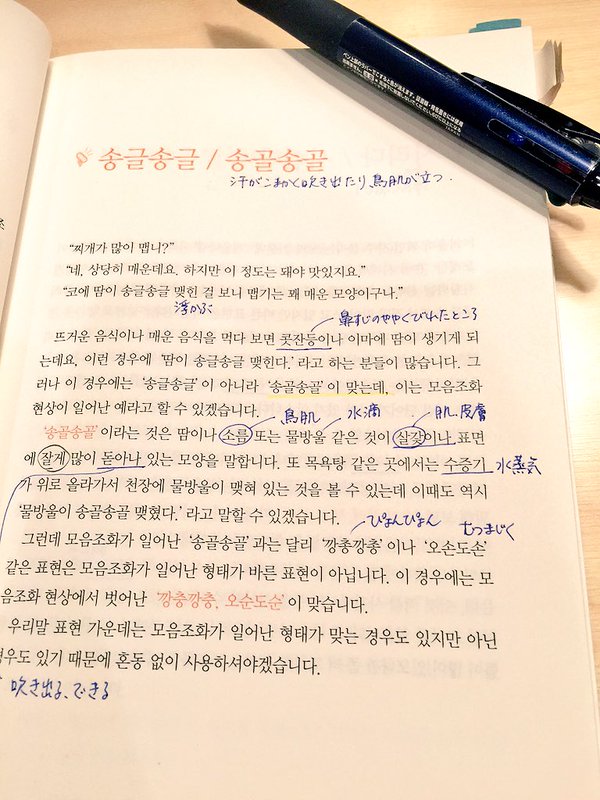 송글송글 / 송골송골
汗がこまかく吹き出たり鳥肌が立つ.
“찌개가 많이 맵니?”
“네, 상당히 매운데요. 하지만 이 정도는 돼야 맛있지요.”
“코에 땀이 송글송글 맺힌 걸 보니 맵기는 꽤 매운 모양이구나.”
浮かぶ
鼻すじのややくびれたところ
뜨거운 음식이나 매운 음식을 먹다 보면 콧잔등이나 이마에 땀이 생기게 되
는데요, 이런 경우에 ‘땀이 송글송글 맺힌다.’ 라고 하는 분들이 많습니다. 그
러나 이 경우에는 ‘송글송글’ 이 아니라 ‘송골송골’ 이 맞는데, 이는 모음조화
현상이 일어난 예라고 할 수 있겠습니다.
鳥肌 水滴 肌.皮膚
‘송골송골’ 이라는 것은 땀이나 소름 또는 물방울 같은 것이 살갗이나 표면
에 잘게 많이 돋아나 있는 모양을 말합니다. 또 목욕탕 같은 곳에서는 수증기 水蒸気
가 위로 올라가서 천장에 물방울이 맺혀 있는 것을 볼 수 있는데 이때도 역시
‘물방울이 송골송골 맺혔다.’ 라고 말할 수 있겠습니다.
ぴょんぴょん むつまじく
그런데 모음조화가 일어난 ‘송골송골’ 과는 달리 ‘깡총깡총’ 이나 ‘오손도손’
같은 표현은 모음조화가 일어난 형태가 바른 표현이 아닙니다. 이 경우에는 모
음조화 현상에서 벗어난 ‘깡충깡충, 오순도순’ 이 맞습니다.
우리말 표현 가운데는 모음조화가 일어난 형태가 맞는 경우도 있지만 아닌
경우도 있기 때문에 혼동 없이 사용하셔야겠습니다.
吹き出る、できる